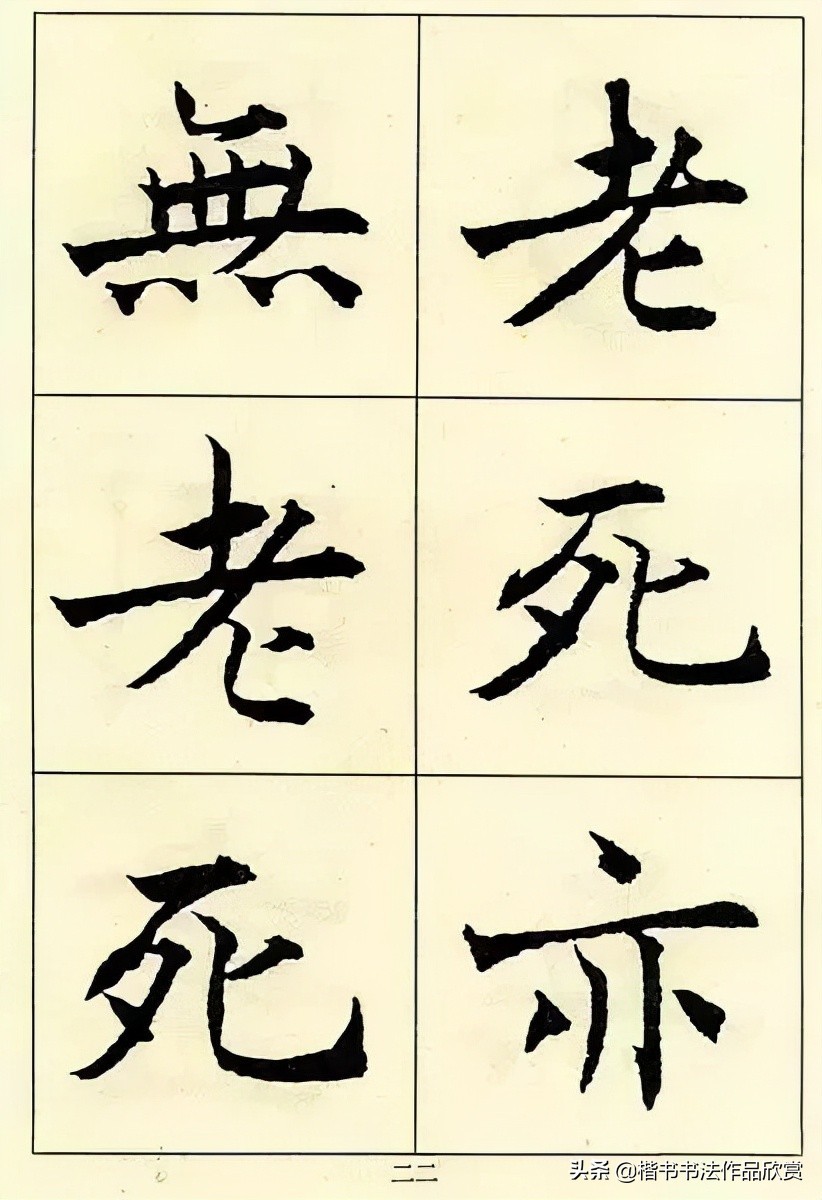 老死亦
無老死
二二
头条 @楷书书法作品欣赏